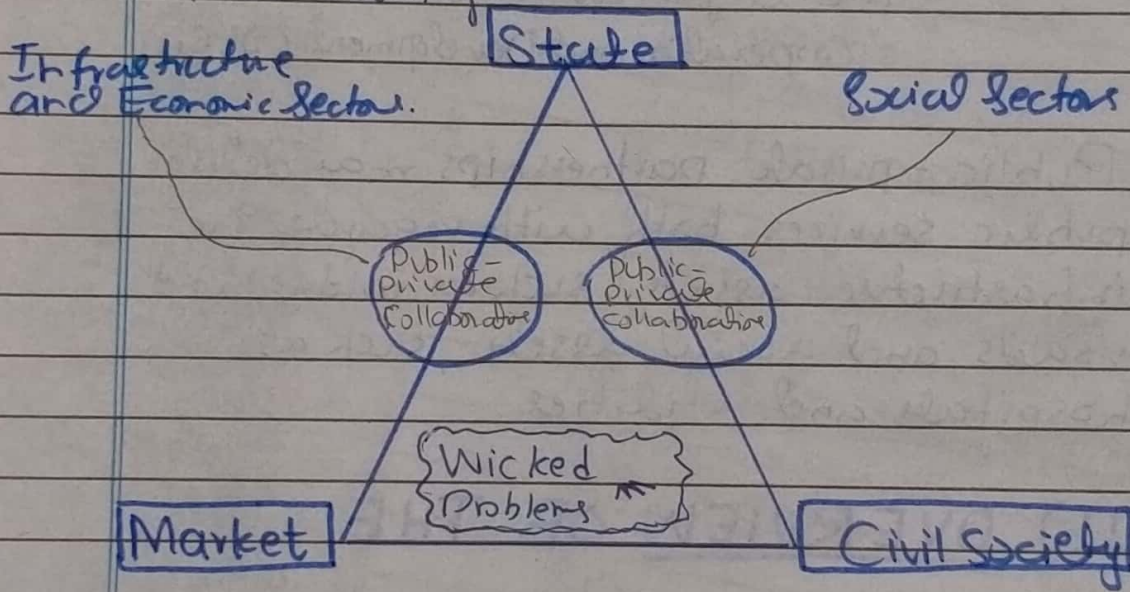 State
Infrastructure
and Economic Sectors.
Social Sectors
Public-
private
Collaborative
Public-
private
Collaborative
Wicked
Problems
Market
Civil Society